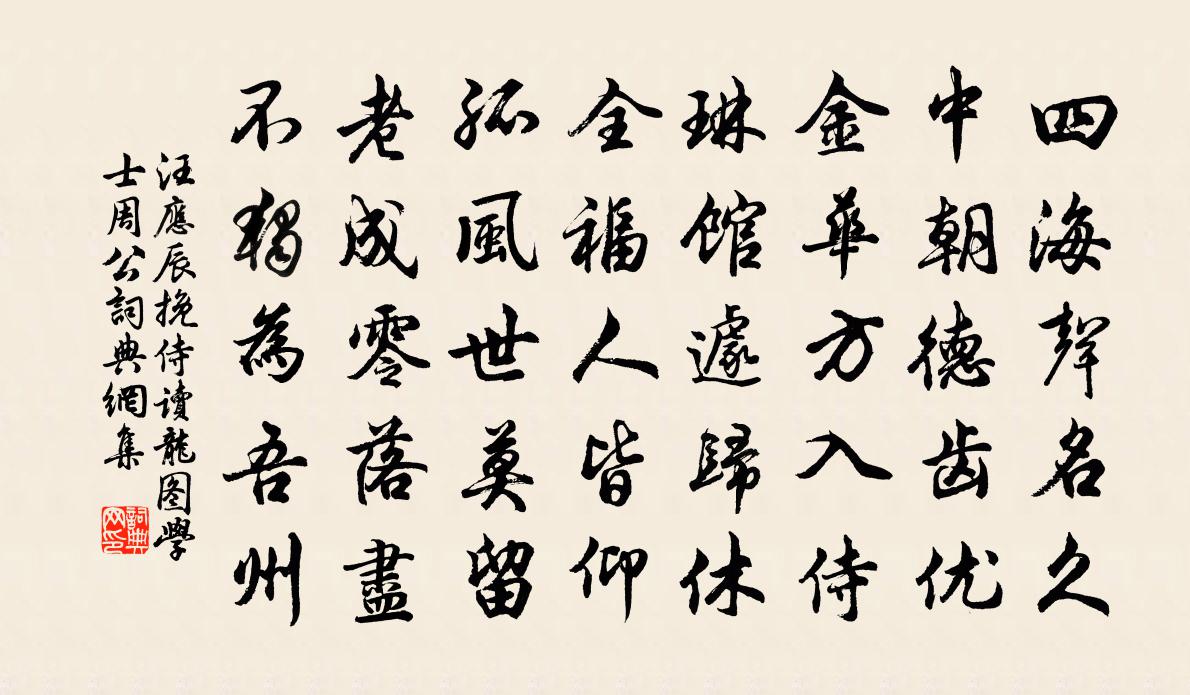 四海聲名久
中朝德齒优
金華方入侍
琳館遽歸休
全福人皆仰
孤風世莫留
老成零落盡
不獨為吾州
汪應辰挽侍讀龍图學
士周公詞典網集
詞典
网印